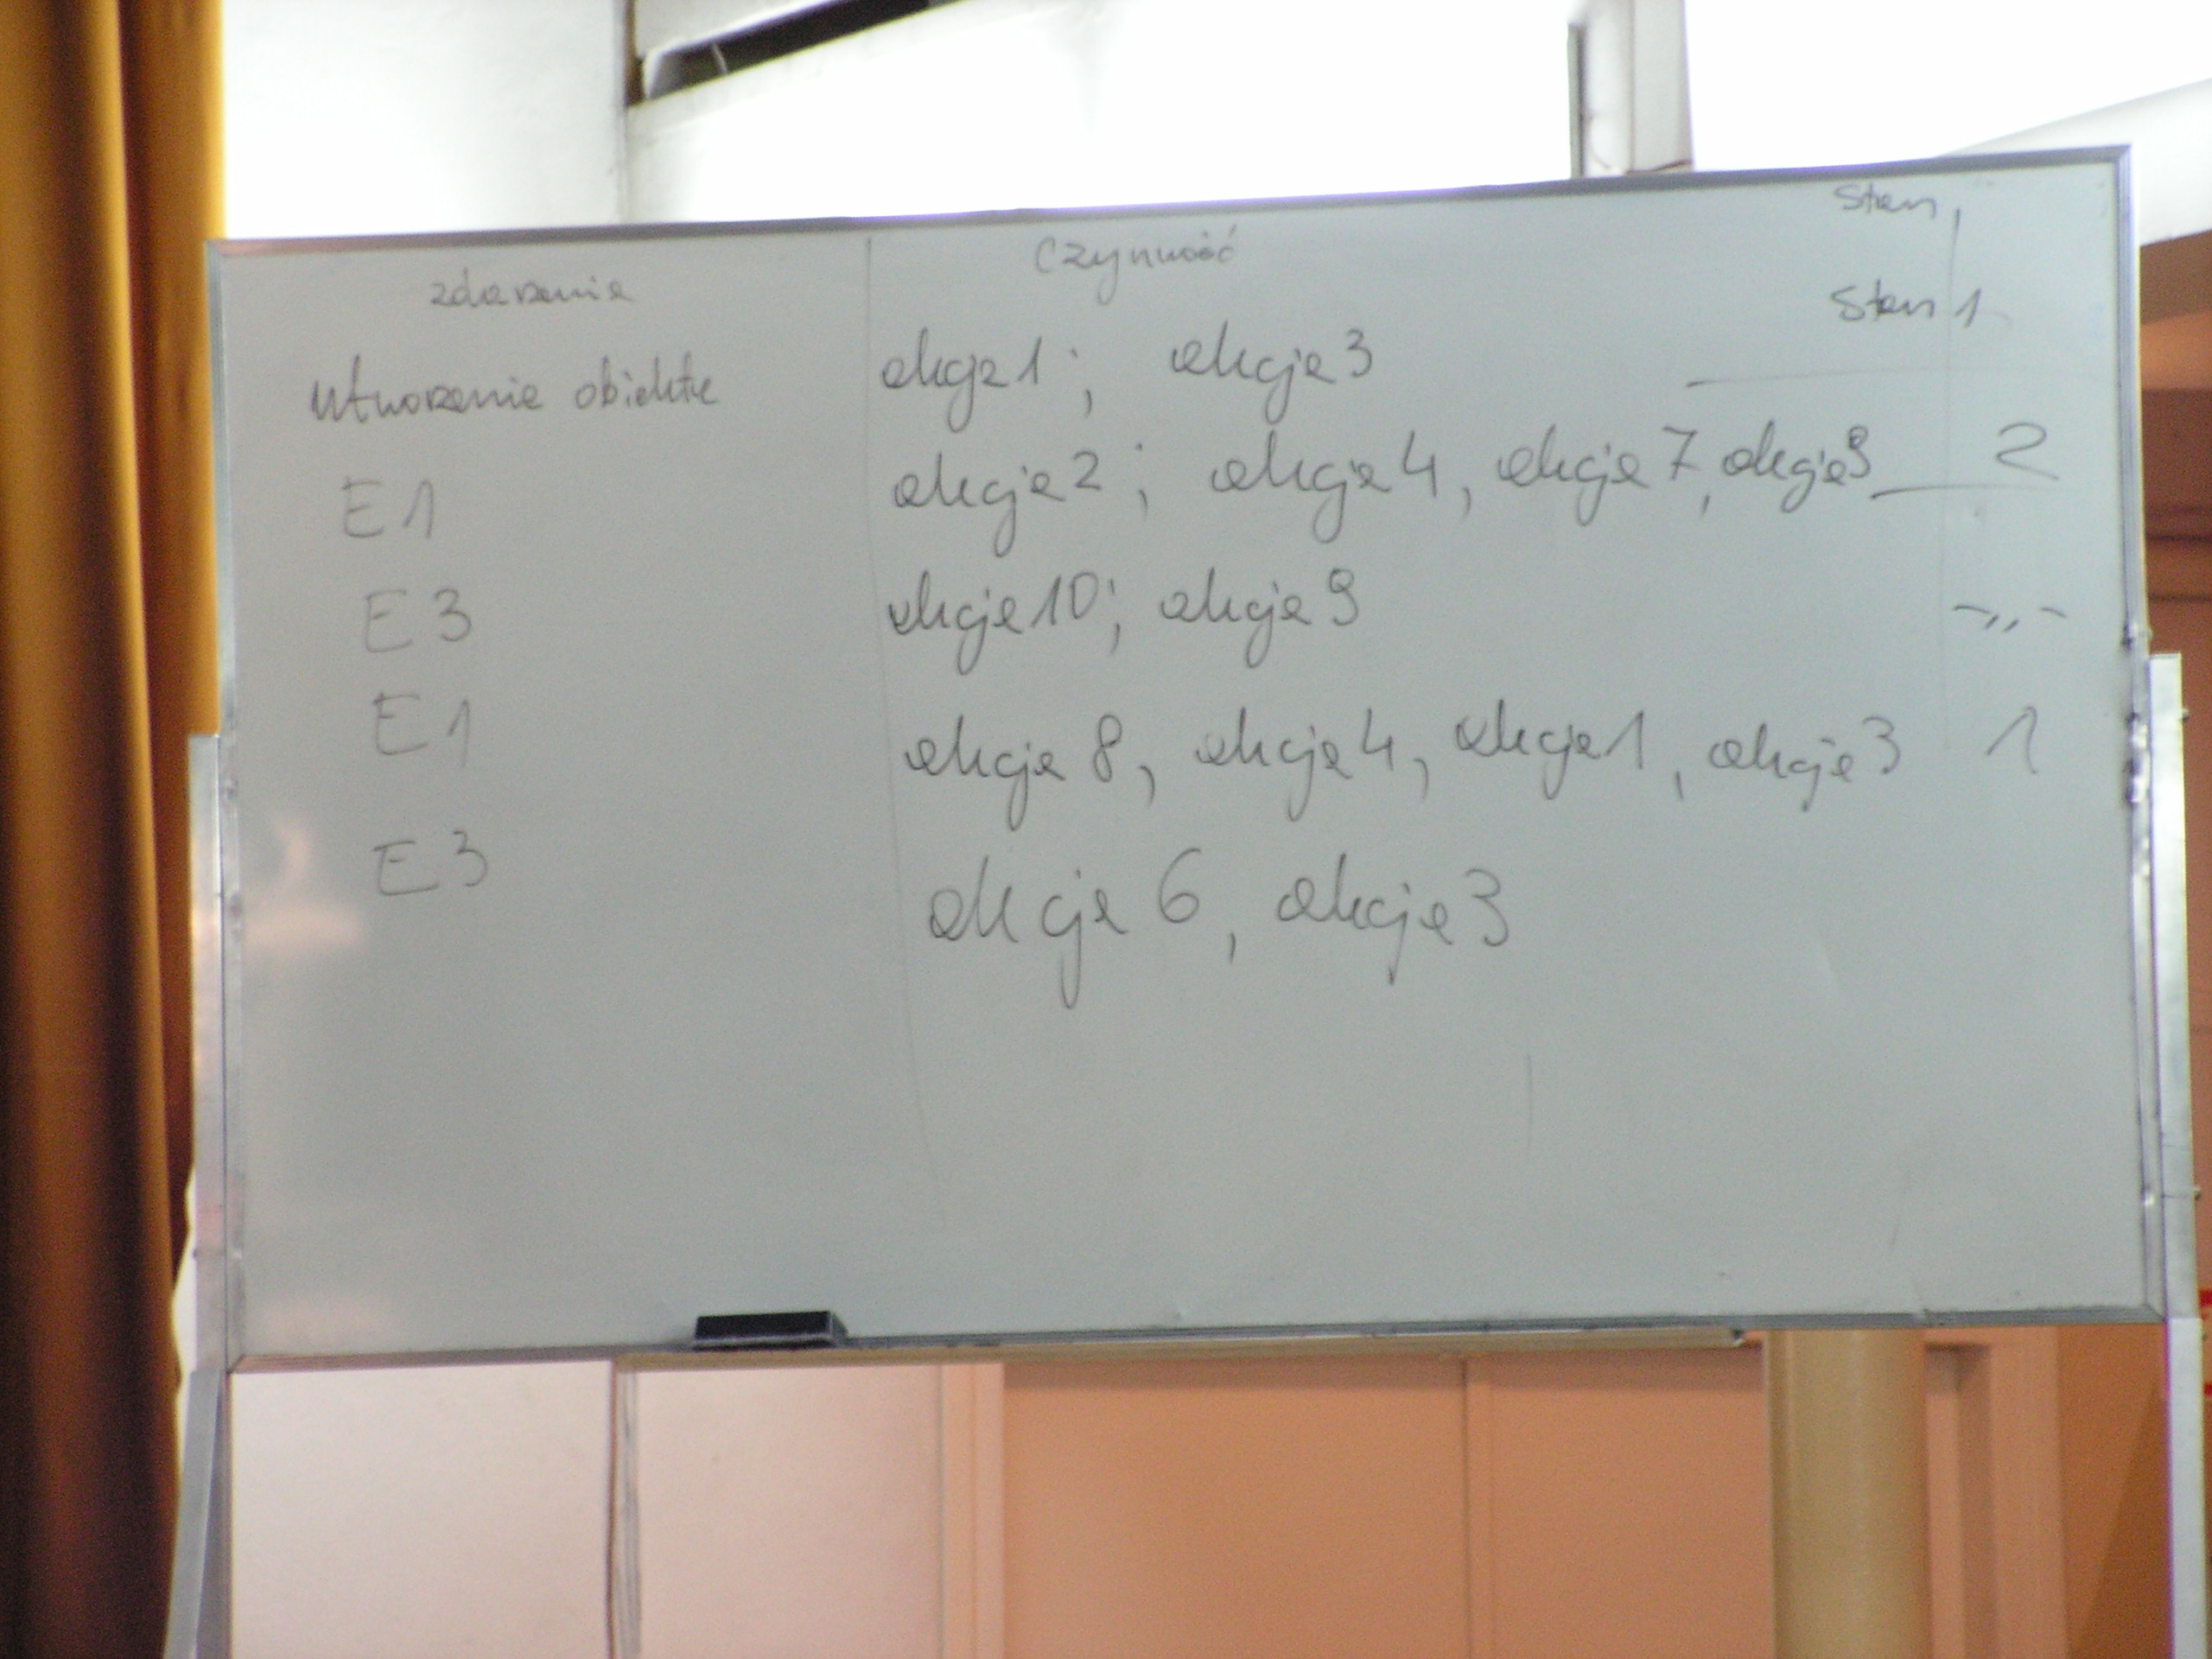 zdarzenie Czynność Stan
Stan 1
utworzenie obiektu akcja1; akcja3
E1 akcja2; akcja4, akcja7, akcja9 2
E3 akcja10; akcja9 -„-
E1 akcja8, akcja4, akcja1, akcja3 1
E3 akcja6, akcja3